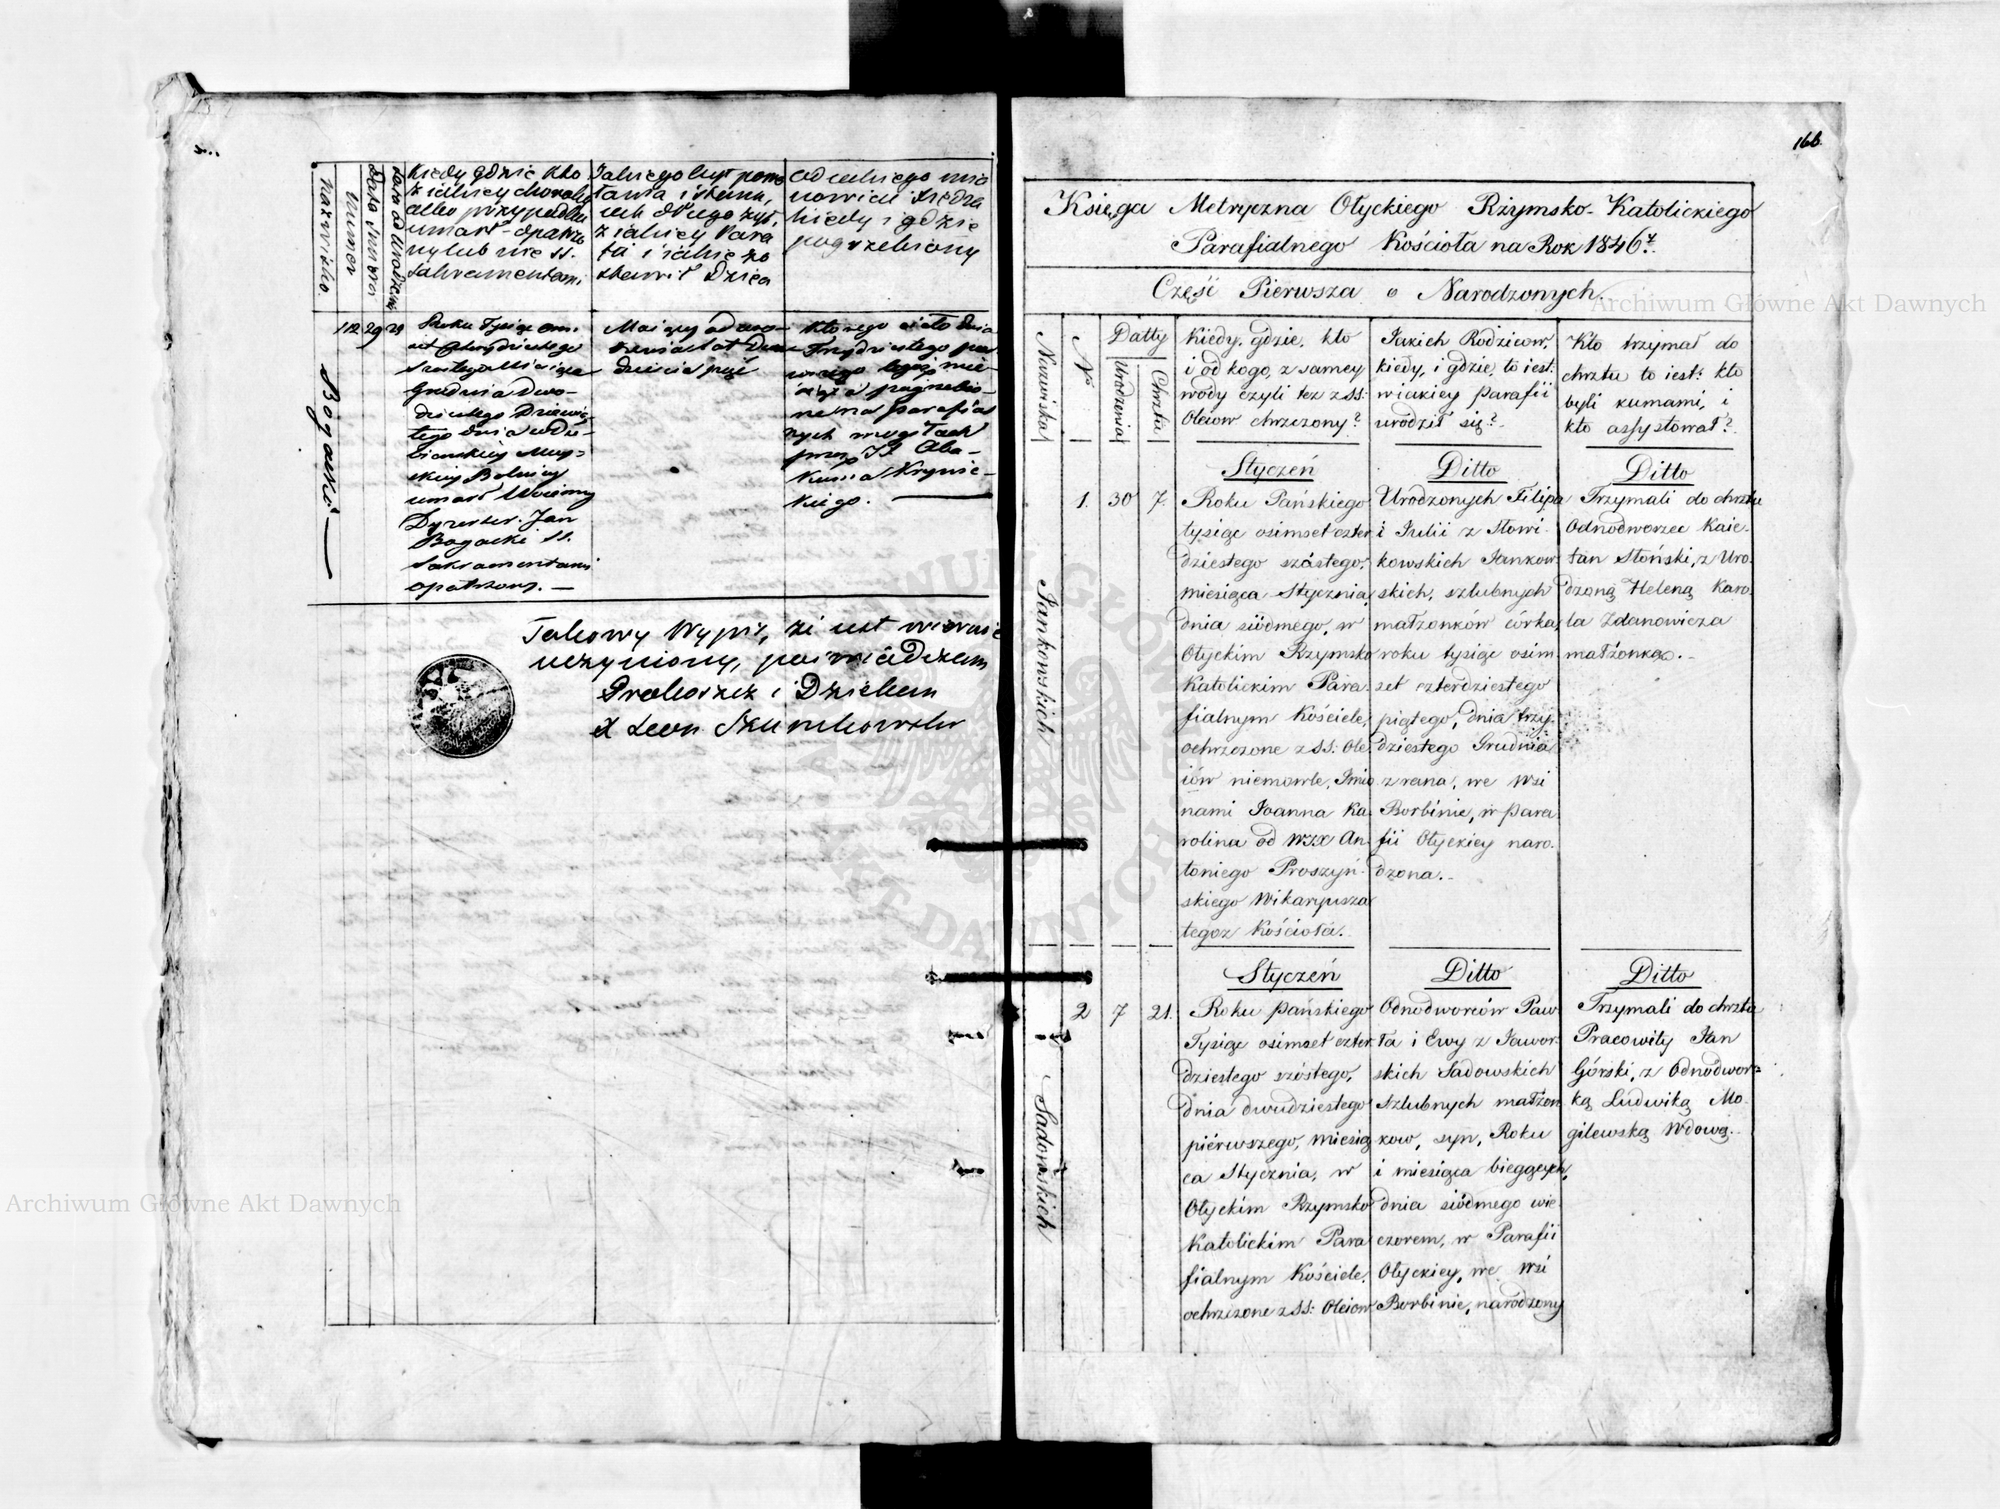 Nazwisko.
Numer
Data Śmierci
Lata od Urodzenia
Kiedy gdzie kto
z jakiey choroby
albo przypadku
umarł opatrzo
ny lub nie SS.
Sakramentami
Jakiego był powo
łania i stanu,
jak długo żył,
z jakiey Para
fii i jakie zo
stawił Dzieci
Od jakiego mia
nowicie Xiędza
kiedy i gdzie
pogrzebiony
Bogacki
112 29
Roku Tysiąc ośm
set Czterdziestego
Szóstego Miesiąca
Grudnia Dwu-
dziestego Dziewią
tego dnia
umarł
Jan
Bogacki SS.
Sakramentami
opatrzony. —
Maiący od uro-
dzenia lat Dwa
dzieścia pięć
Którego ciało dnia
Trzydziestego pier
wszego tegoż mie
siąca pogrzebio
ne na parafial
nych mogiłach
przez
Krynic-
kiego. —
Takowy Wypis, że jest wiernie
uczyniony, poświadczam
Proboszcz i Dziekan
X Leon Szumkowski
166.
Księga Metryczna Ołyckiego Rzymsko-Katolickiego
Parafialnego Kościoła na Rok 1846.
Część Pierwsza o Narodzonych.
Nazwiska
No
Datty
Urodzenia
Chrztu
Kiedy, gdzie, kto
i od kogo, z samey
wody czyli też z SS:
Oleiow chrzczony?
Jakich Rodziców,
kiedy, i gdzie, to iest:
w iakiey parafii
urodził się?
Kto trzymał do
chrztu to iest: kto
byli kumami, i
kto assystował?
Styczeń
Ditto
Ditto
Jankowskich
1. 30 7.
Roku Pańskiego
tysiąc osimset czter
dziestego szóstego,
miesiąca Stycznia,
dnia siódmego, w
Ołyckim Rzymsko
Katolickim Para.
fialnym Kościele,
ochrzczone z SS: Ole.
iów niemowle, Imio
nami Joanna Ka.
rolina od WJX An.
toniego Proszyń.
skiego Wikaryusza
tegoz Kościoła.
Urodzonych Filipa
i Julii z Słowi.
kowskich Jankow.
skich, szlubnych
małżonków córka,
roku tysiąc osim.
set czterdziestego
piątego, dnia trzy.
dziestego Grudnia
z rana, we wsi
Borbinie, w para
fii Ołyckiey naro.
dzona.
Trzymali do chrztu
Odnodworzec Kaie.
tan Słoński, z Uro.
dzoną Heleną Karo.
la Zdanowicza
małżonką.
Styczeń
Ditto
Ditto
Sadowskich
2 7 21.
Roku pańskiego
Tysiąc osimset czter
dziestego szóstego,
dnia dwudziestego
piérwszego, miesią
ca Stycznia, w
Ołyckim Rzymsko
Katolickim Para
fialnym Kościele,
ochrzczone z SS: Oleiow
Odnodworców Paw
ła i Ewy z Jawor.
skich Sadowskich
szlubnych małżon
kow, syn, Roku
i miesiąca bieżących,
dnia siódmego wie
czorem, w Parafii
Ołyckiey, we wsi
Borbinie, narodzony
Trzymali do chrztu
Pracowity Jan
Górski, z Odnodwor-
ką Ludwiką Mo.
gilewską Wdową.
Archiwum Główne Akt Dawnych
Archiwum Główne Akt Dawnych